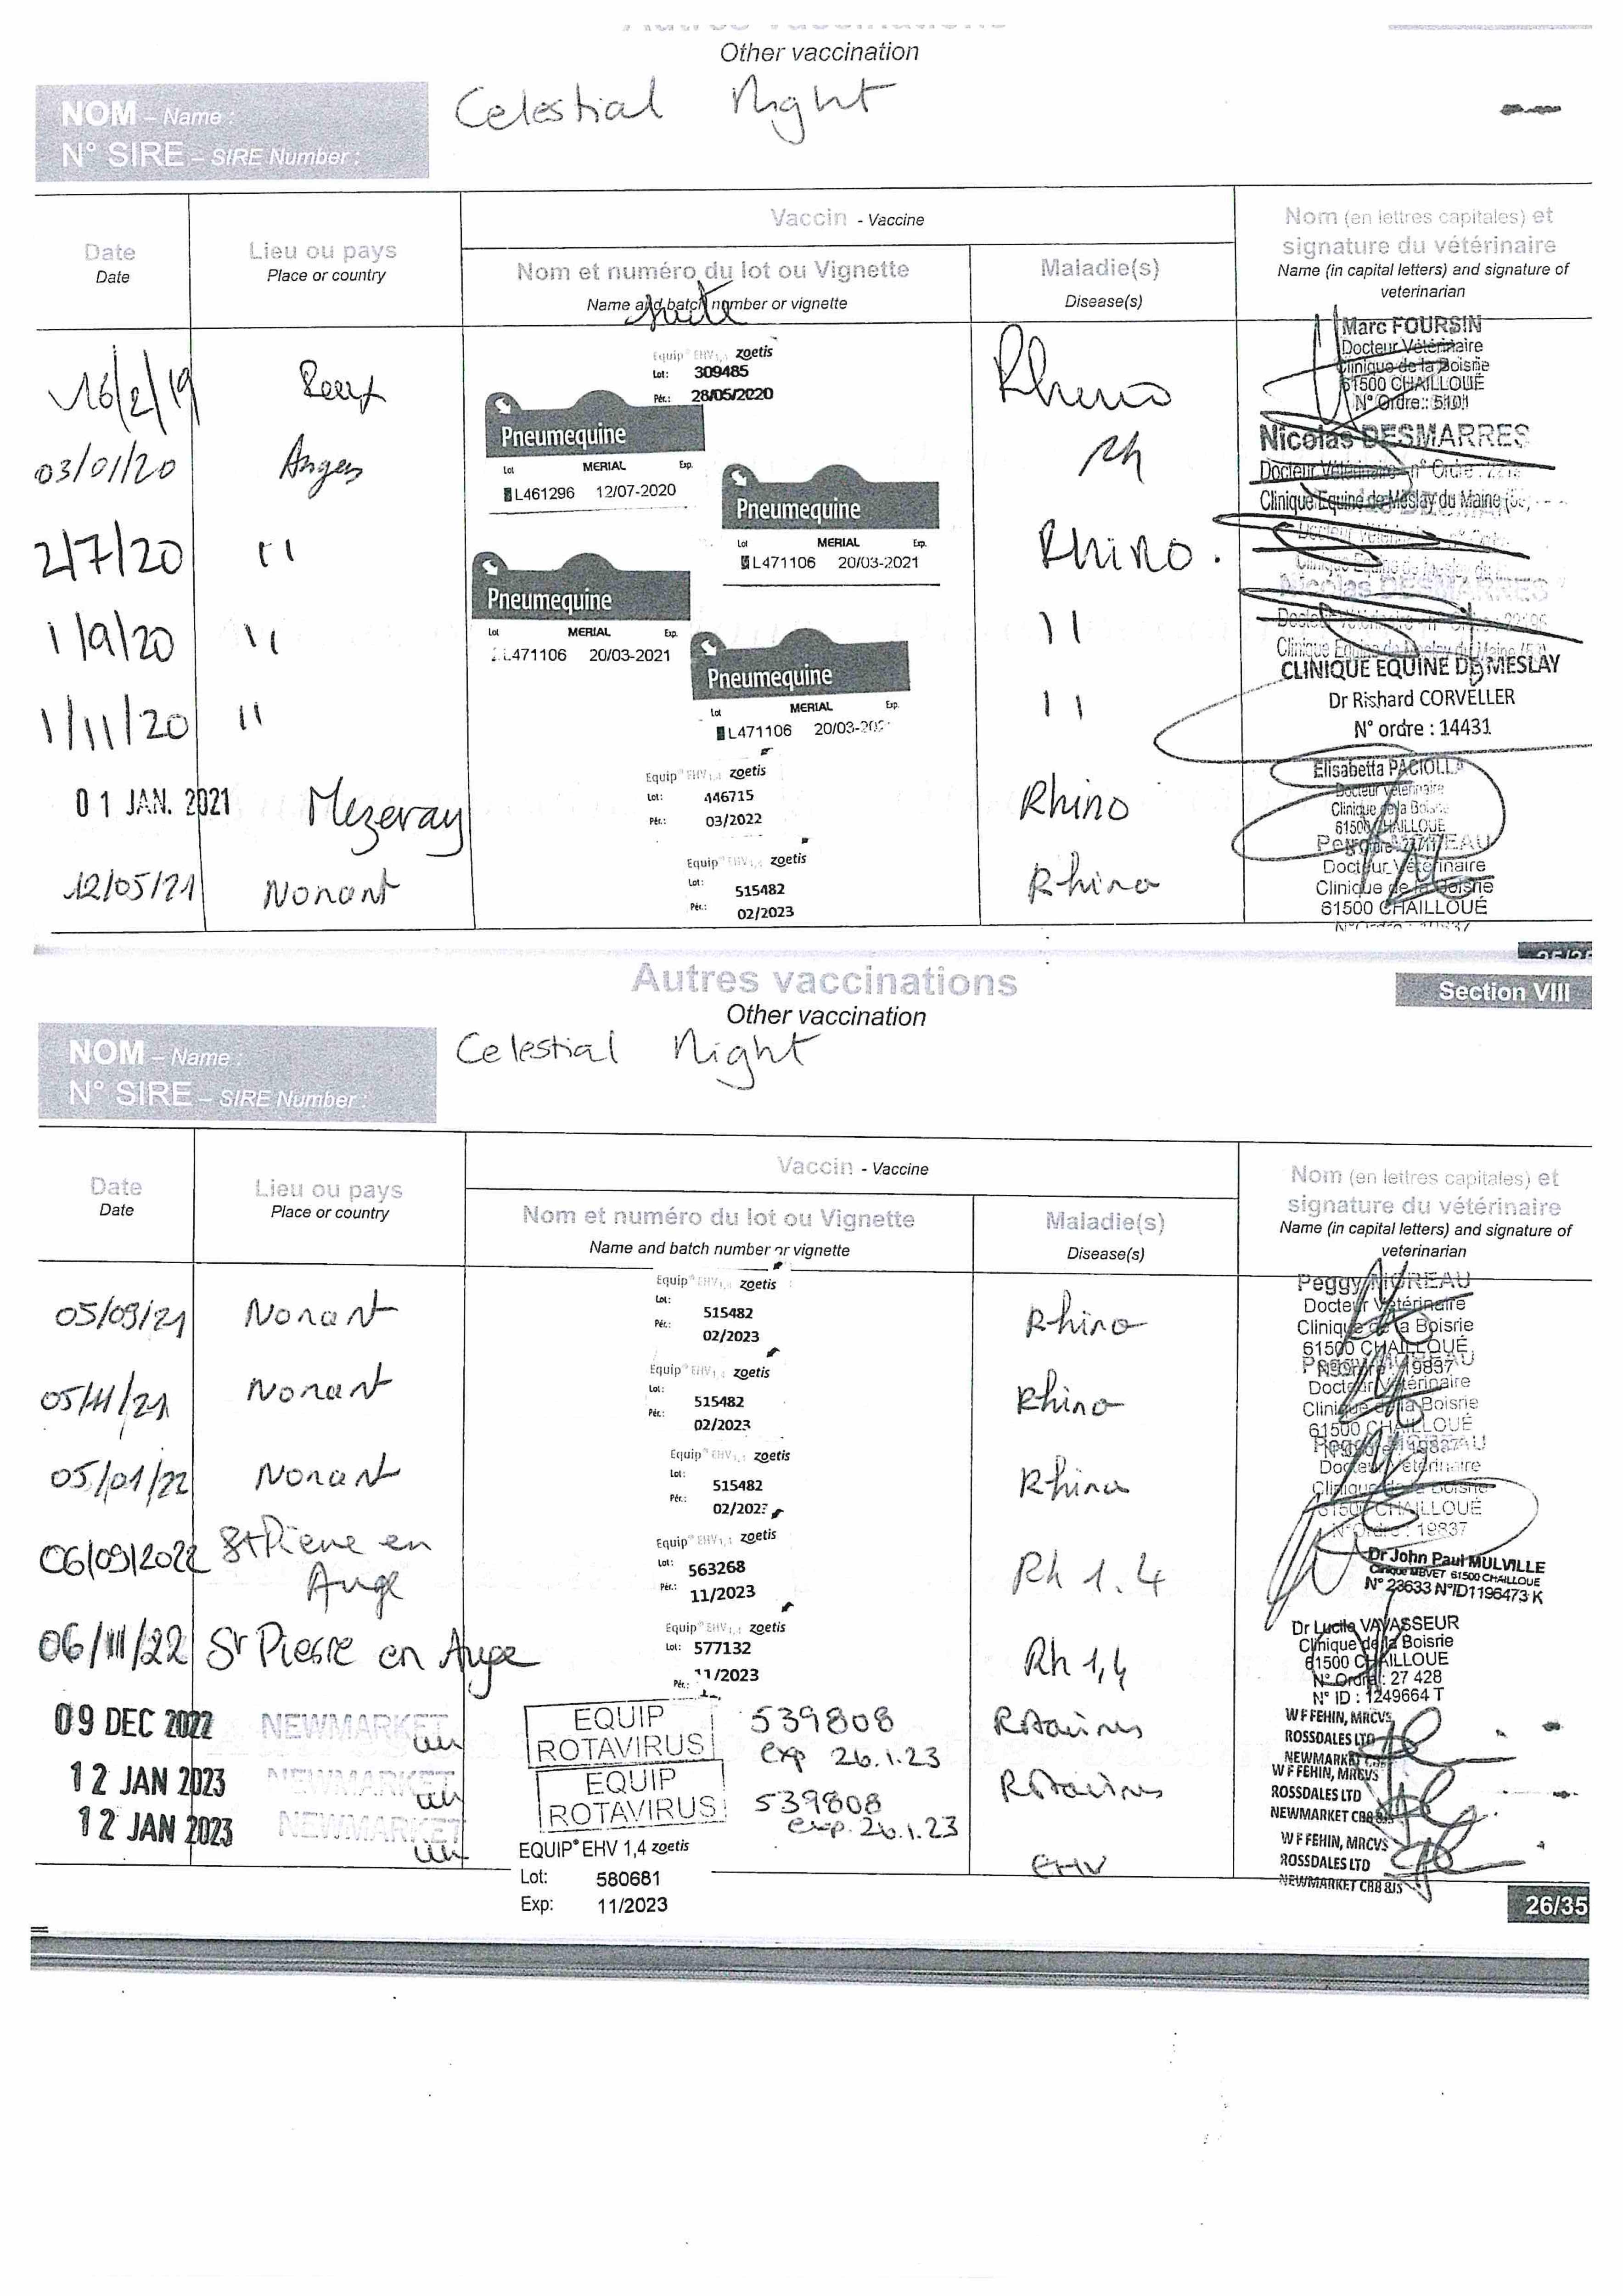 Other vaccination
NOM – Name :
Celestial Night
N° SIRE – SIRE Number :
Vaccin - Vaccine
Date
Date
Lieu ou pays
Place or country
Nom et numéro du lot ou Vignette
Name and batch number or vignette
Maladie(s)
Disease(s)
Nom (en lettres capitales) et
signature du vétérinaire
Name (in capital letters) and signature of
veterinarian
16/2/19
Equip® EHV1,4 zoetis
Lot: 309485
Pér.: 28/05/2020
Rhino
Marc FOURSIN
Docteur Vétérinaire
Clinique de la Boisrie
61500 CHAILLOUÉ
N° Ordre : 5101
03/01/20 Angers
Pneumequine
Lot MERIAL Exp.
L461296 12/07-2020
Rh
Nicolas DESMARRES
Docteur Vétérinaire - n° Ordre :
Clinique Equine de Meslay du Maine
2/7/20 ''
Pneumequine
Lot MERIAL Exp.
L471106 20/03-2021
Rhino.
1/9/20 ''
Pneumequine
Lot MERIAL Exp.
L471106 20/03-2021
''
Nicolas DESMARRES
Clinique Equine de Meslay du Maine
1/11/20 ''
Pneumequine
Lot MERIAL Exp.
L471106 20/03-202
''
CLINIQUE EQUINE DE MESLAY
Dr Rishard CORVELLER
N° ordre : 14431
01 JAN. 2021 Mezeray
Equip® EHV1,4 zoetis
Lot: 446715
Pér.: 03/2022
Rhino
Elisabetta PACIOLLA
Docteur vétérinaire
Clinique de la Boisrie
61500 CHAILLOUE
12/05/21 Nonant
Equip® EHV1,4 zoetis
Lot: 515482
Pér.: 02/2023
Rhino
Peggy MOREAU
Docteur Vétérinaire
Clinique de la Boisrie
61500 CHAILLOUÉ
Autres vaccinations
Section VIII
Other vaccination
NOM – Name :
Celestial Night
N° SIRE – SIRE Number :
Vaccin - Vaccine
Date
Date
Lieu ou pays
Place or country
Nom et numéro du lot ou Vignette
Name and batch number or vignette
Maladie(s)
Disease(s)
Nom (en lettres capitales) et
signature du vétérinaire
Name (in capital letters) and signature of
veterinarian
05/09/21 Nonant
Equip® EHV1,4 zoetis
Lot: 515482
Pér.: 02/2023
Rhino
Peggy MOREAU
Docteur Vétérinaire
Clinique de la Boisrie
61500 CHAILLOUÉ
N° Ordre : 19837
05/11/21 Nonant
Equip® EHV1,4 zoetis
Lot: 515482
Pér.: 02/2023
Rhino
Docteur Vétérinaire
Clinique de la Boisrie
61500 CHAILLOUÉ
05/01/22 Nonant
Equip® EHV1,4 zoetis
Lot: 515482
Pér.: 02/202
Rhino
Docteur Vétérinaire
Clinique de la Boisrie
61500 CHAILLOUÉ
N° Ordre : 19837
06/09/2022 St Pierre en
Auge
Equip® EHV1,4 zoetis
Lot: 563268
Pér.: 11/2023
Rh 1.4
Dr John Paul MULVILLE
Clinique MEVET 61500 CHAILLOUE
N° 23633 N°ID1196473 K
06/11/22 St Pierre en Auge
Equip® EHV1,4 zoetis
Lot: 577132
Pér.: 11/2023
Rh 1,4
Dr Lucile VAVASSEUR
Clinique de la Boisrie
61500 CHAILLOUE
N° Ordre : 27 428
N° ID : 1249664 T
09 DEC 2022 NEWMARKET
EQUIP
ROTAVIRUS
539808
exp 26.1.23
Rotavirus
W F FEHIN, MRCVS
ROSSDALES LTD
NEWMARKET
12 JAN 2023 NEWMARKET
EQUIP
ROTAVIRUS
539808
exp. 26.1.23
Rotavirus
W F FEHIN, MRCVS
ROSSDALES LTD
NEWMARKET CB8 8JS
12 JAN 2023 NEWMARKET
EQUIP® EHV 1,4 zoetis
Lot: 580681
Exp: 11/2023
EHV
W F FEHIN, MRCVS
ROSSDALES LTD
NEWMARKET CB8 8JS
26/35